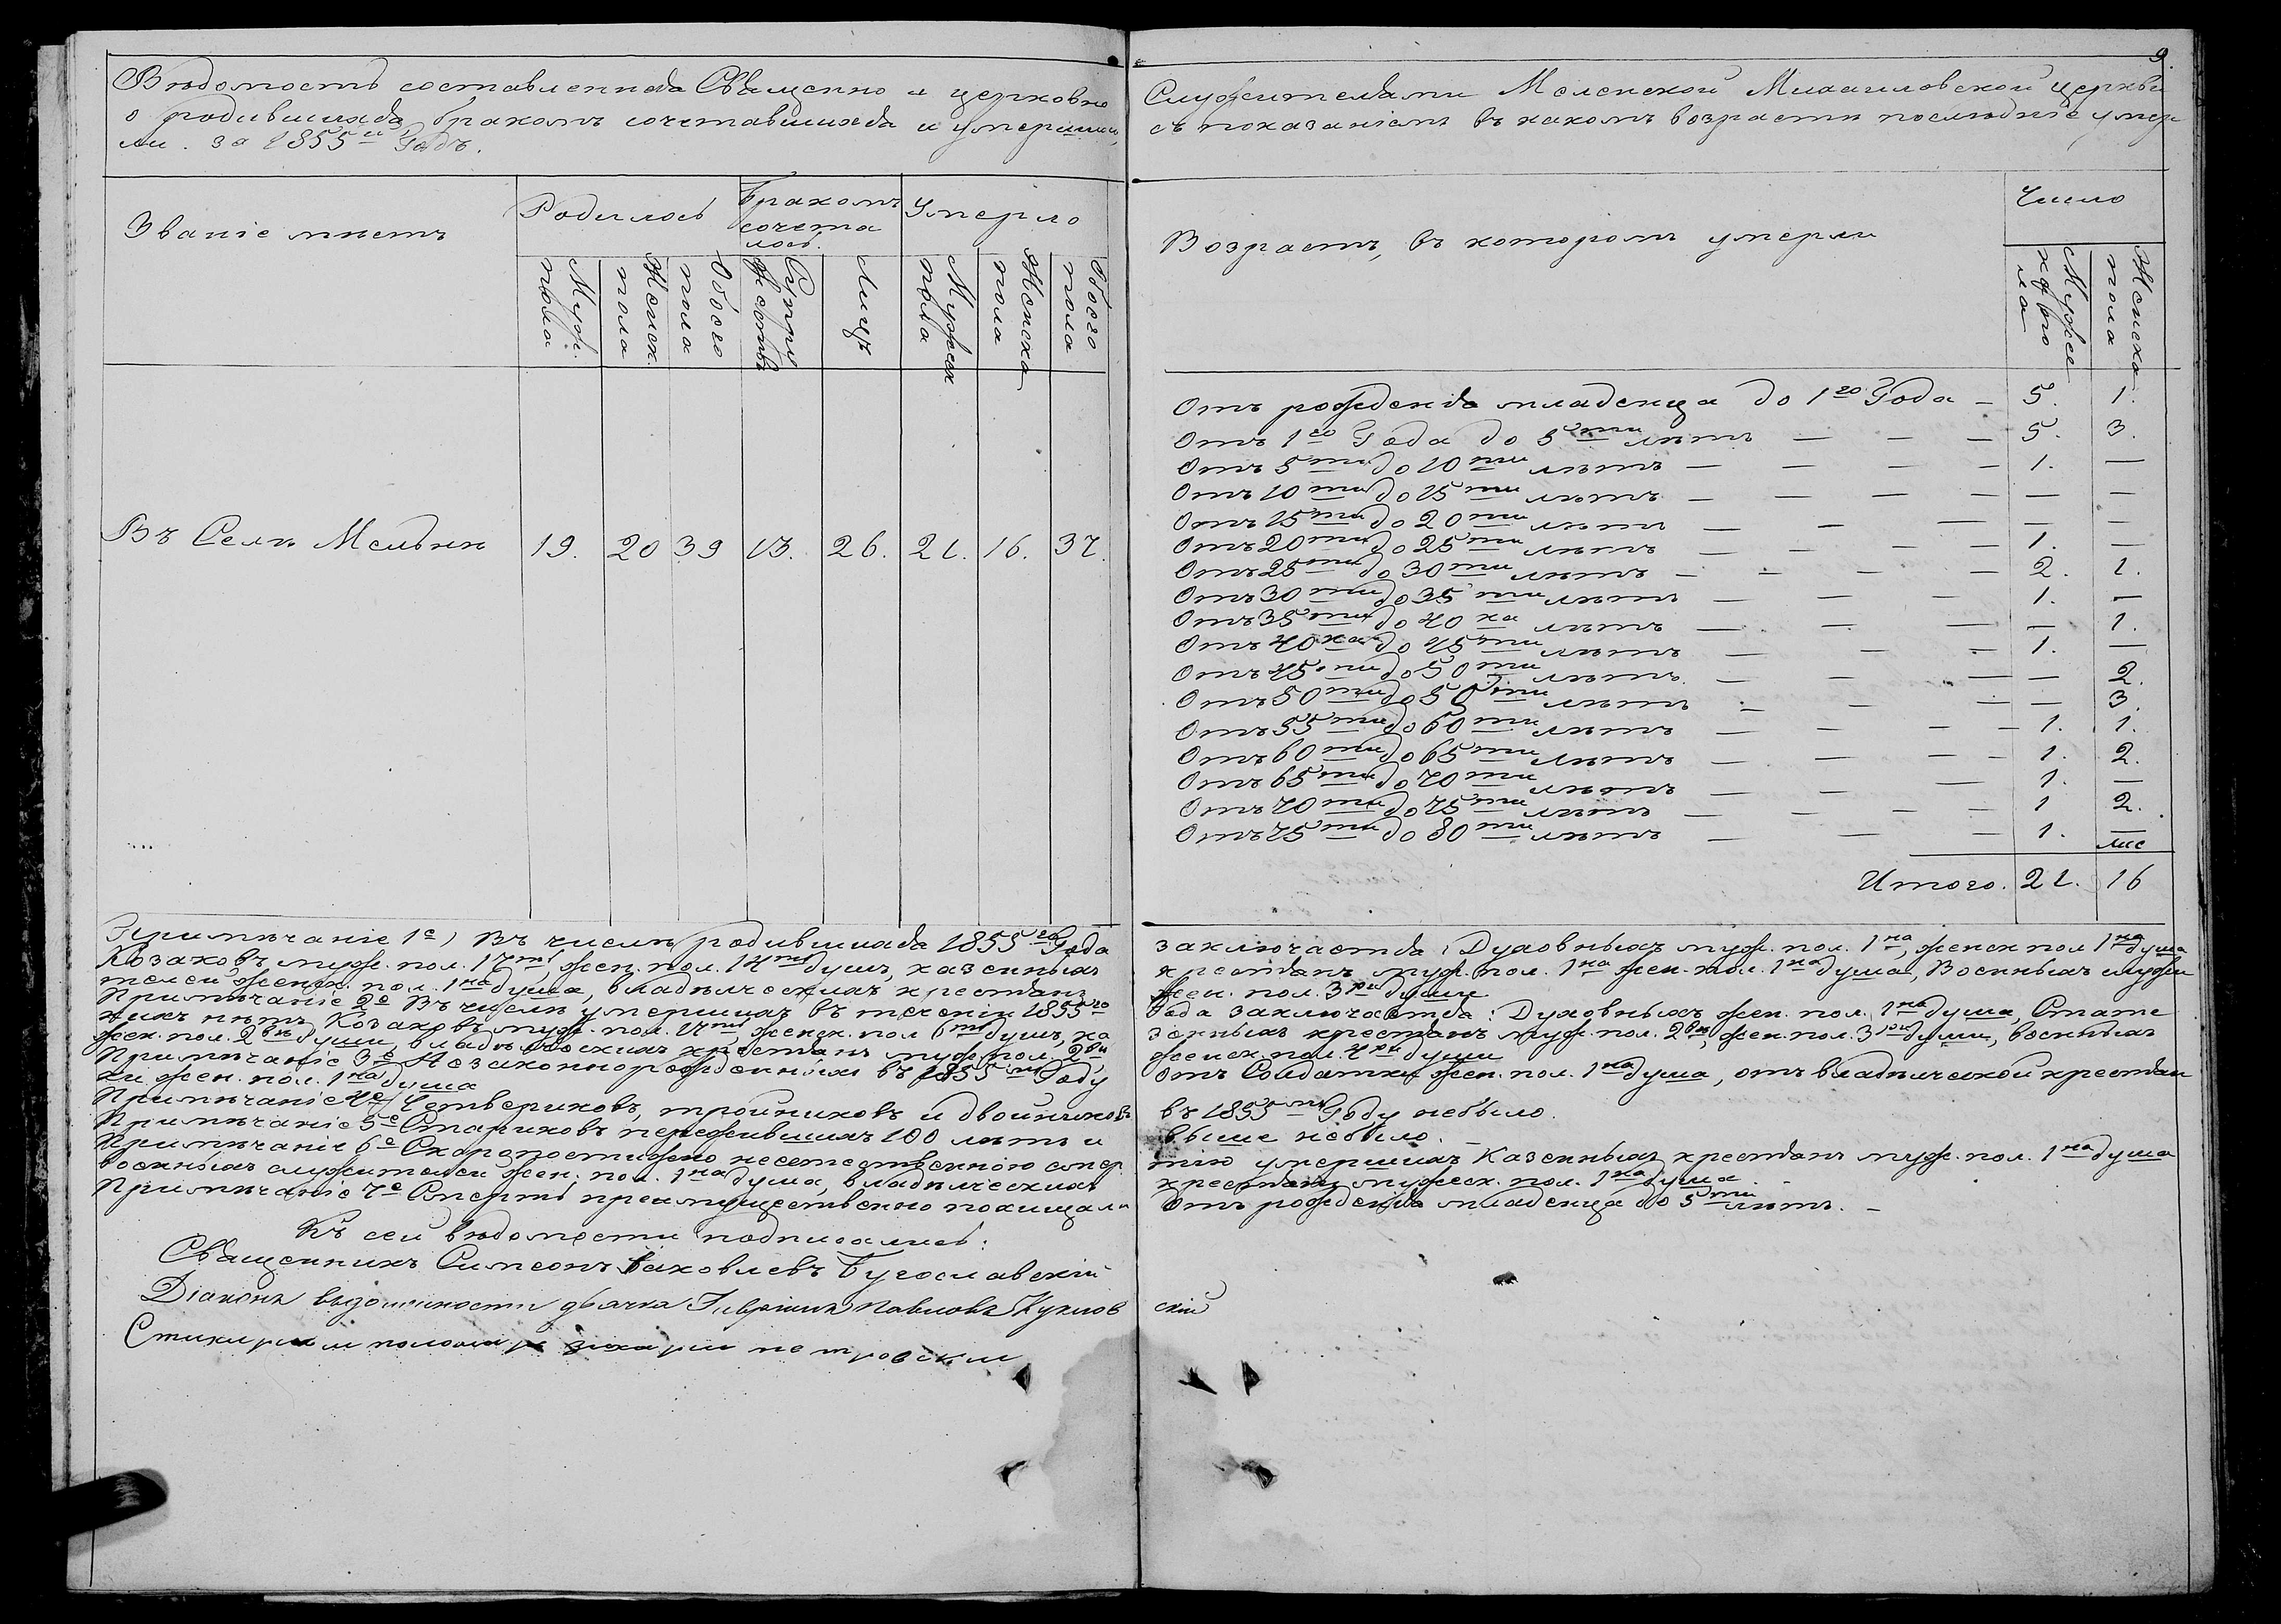 9.
Вѣдомость составленная Священно и церковно
Служителями Меленской Михаиловской церкви
о родившихся, бракомъ сочетавшихся и умерших,
съ показаніемъ въ какомъ возрастѣ послѣдніе умер
ли. за 1855й Годъ.
Званіе мѣстъ
Родилось
Бракомъ сочета лось.
Умерло
Муж. пола
Женск. пола
Обоего пола
Супру жествъ
Лицъ
Мужеск пола
Женска пола
Обоего пола
Въ Селѣ Мельнѣ 19. 20 39 13. 26. 21. 16. 37.
Возрастъ, въ которомъ умерли
Число
Мужес каго по ла
Женска пола
Отъ рожденія младенца до 1го Года – 5. 1.
Отъ 1го Года до 5ти лѣтъ — — — 5. 3.
Отъ 5ти до 10ти лѣтъ — — — — 1. —
Отъ 10ти до 15ти лѣтъ — — — — — —
Отъ 15ти до 20ти лѣтъ — — — — —
Отъ 20ти до 25ти лѣтъ — — — — 1. —
Отъ 25ти до 30ти лѣтъ — — — — 2. 1.
Отъ 30ти до 35ти лѣтъ — — — 1. —
Отъ 35ти до 40ка лѣтъ — — — — 1.
Отъ 40ка до 45ти лѣтъ — — — 1. —
Отъ 45ти до 50ти лѣтъ — — — — 2.
Отъ 50ти до 55ти лѣтъ — — — — 3.
Отъ 55ти до 60ти лѣтъ — — — – 1. 1.
Отъ 60ти до 65ти лѣтъ — — — – 1. 2.
Отъ 65ти до 70ти лѣтъ — — — 1. —
Отъ 70ти до 75ти лѣтъ — — — — 1 2.
Отъ 75ти до 80ти лѣтъ — — — 1. —
Итого. 21. 16
Примѣчаніе 1е) Въ числѣ родившихся 1855го Года
заключается: Духовныхъ муж. пол. 1на, женск пол 1на душа
Козаковъ муж. пол. 17ть, жен. пол. 14ть душъ, казенныхъ
крестьянъ муж. пол. 1на жен. пол. 1на душа, Военныхъ служи
телей женск. пол. 1на душа, владѣлческихъ крестьянъ
жен. пол. 3ри души
Примѣчаніе 2е Въ числѣ умершихъ въ теченіи 1855го
Года заключается: Духовныхъ жен. пол. 1на душа, Статс
кихъ нѣтъ, Козаковъ муж. пол. 17ть, женск. пол 6ть душъ, ка
зенныхъ крестьянъ муж. пол. 2вѣ, жен. пол. 3ри души, военныхъ
жен. пол. 2вѣ души, владѣлческихъ крестьянъ муж. пол. 2вѣ,
женск. пол. 4ри души
Примѣчаніе 3е Незаконнорожденныхъ въ 1855мъ Году
отъ Солдатки жен. пол. 1на душа, отъ владѣлческой крестьян
ки жен. пол. 1на душа
Примѣчаніе 4е Четвериковъ, тройниковъ и двойниковъ
въ 1855мъ Году небыло.
Примѣчаніе 5е Стариковъ пережившихъ 100 лѣтъ и
выше небыло.
Примѣчаніе 6е Скоропостижно несетественною смер
тію умершихъ Казенныхъ крестьянъ муж. пол. 1на душа
военныхъ служителей жен. пол. 1на душа, владѣлческихъ
крестьянъ мужеск. пол. 1на душа.
Примѣчаніе 7е Смерть преимущественно похищала
отъ рожденія младенца до 5ти лѣтъ. –
Къ сей вѣдомости подписались:
Священникъ Симеонъ Іаковлевъ Бугославскій
Діаконъ въ должности дьячка Павловъ Куклов
скій
Стихарный поломарь Захарий петровский